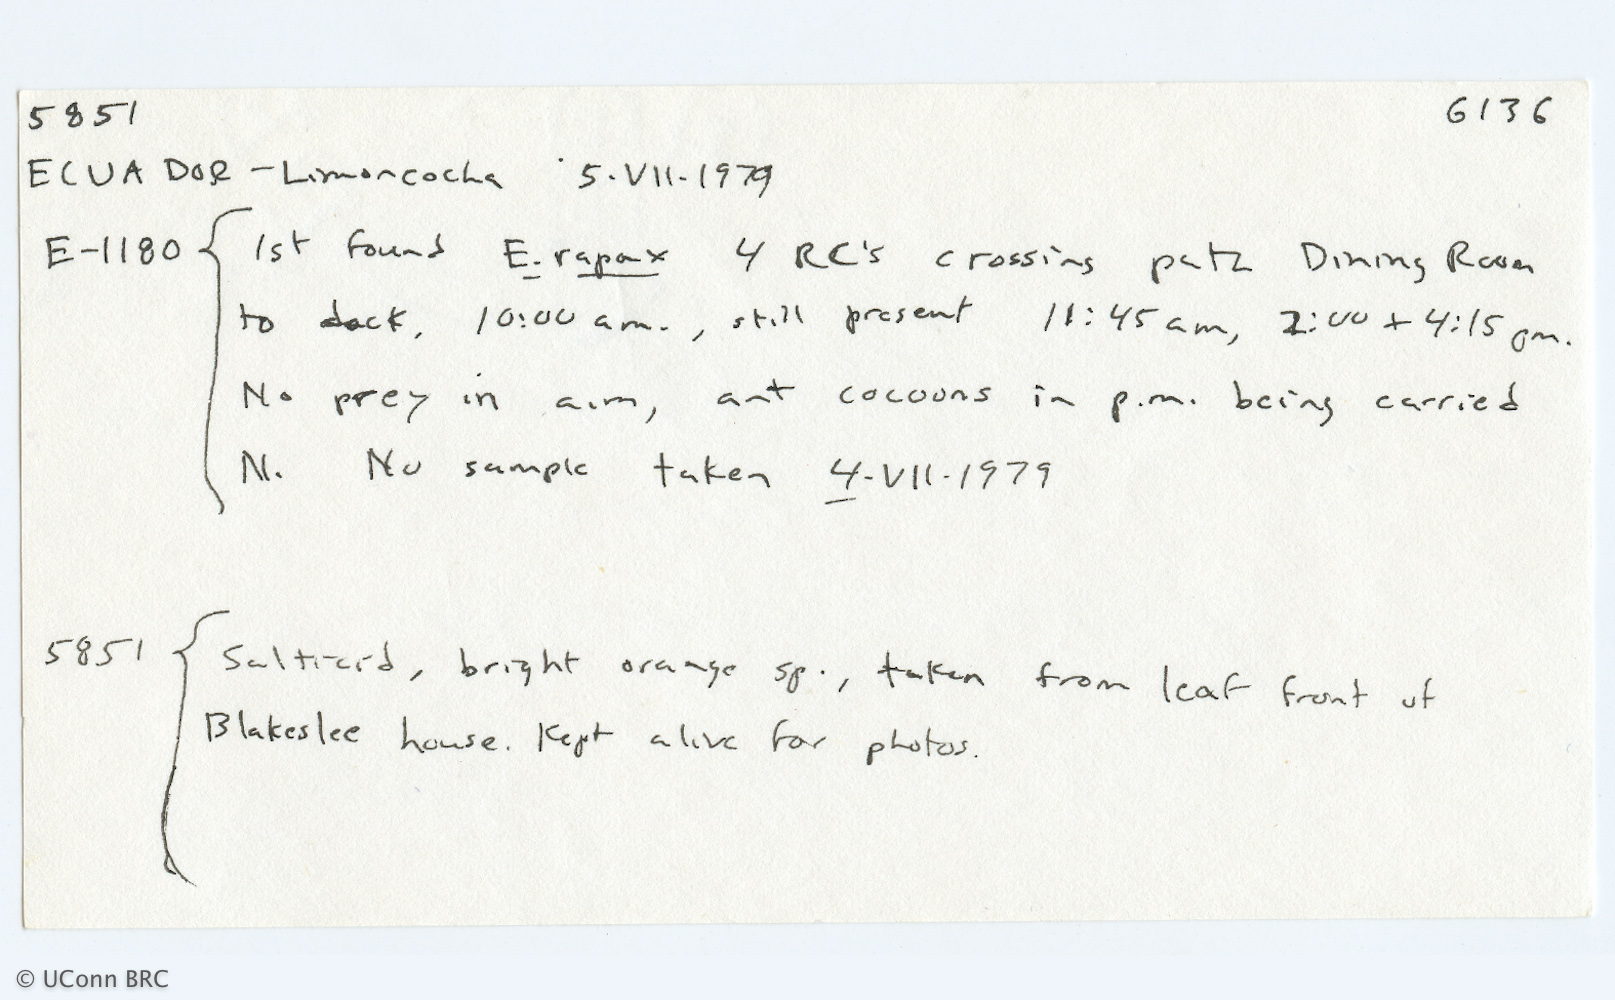 5851 6136
ECUADOR - Limoncocha 5.VII.1979
E-1180 { 1st found E. rapax 4 RC's crossing path Dining Room
to dock, 10:00 am., still present 11:45 am, 2:00 + 4:15 pm.
No prey in a.m, ant cocoons in p.m. being carried
N. No sample taken 4.VII.1979
5851 { Salticid, bright orange sp., taken from leaf front of
Blakeslee house. Kept alive for photos.
© UConn BRC